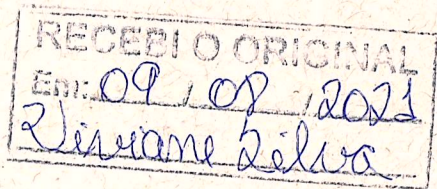 RECEBI O ORIGINAL
Em: 09 / 08 / 2021
Viviane Silva